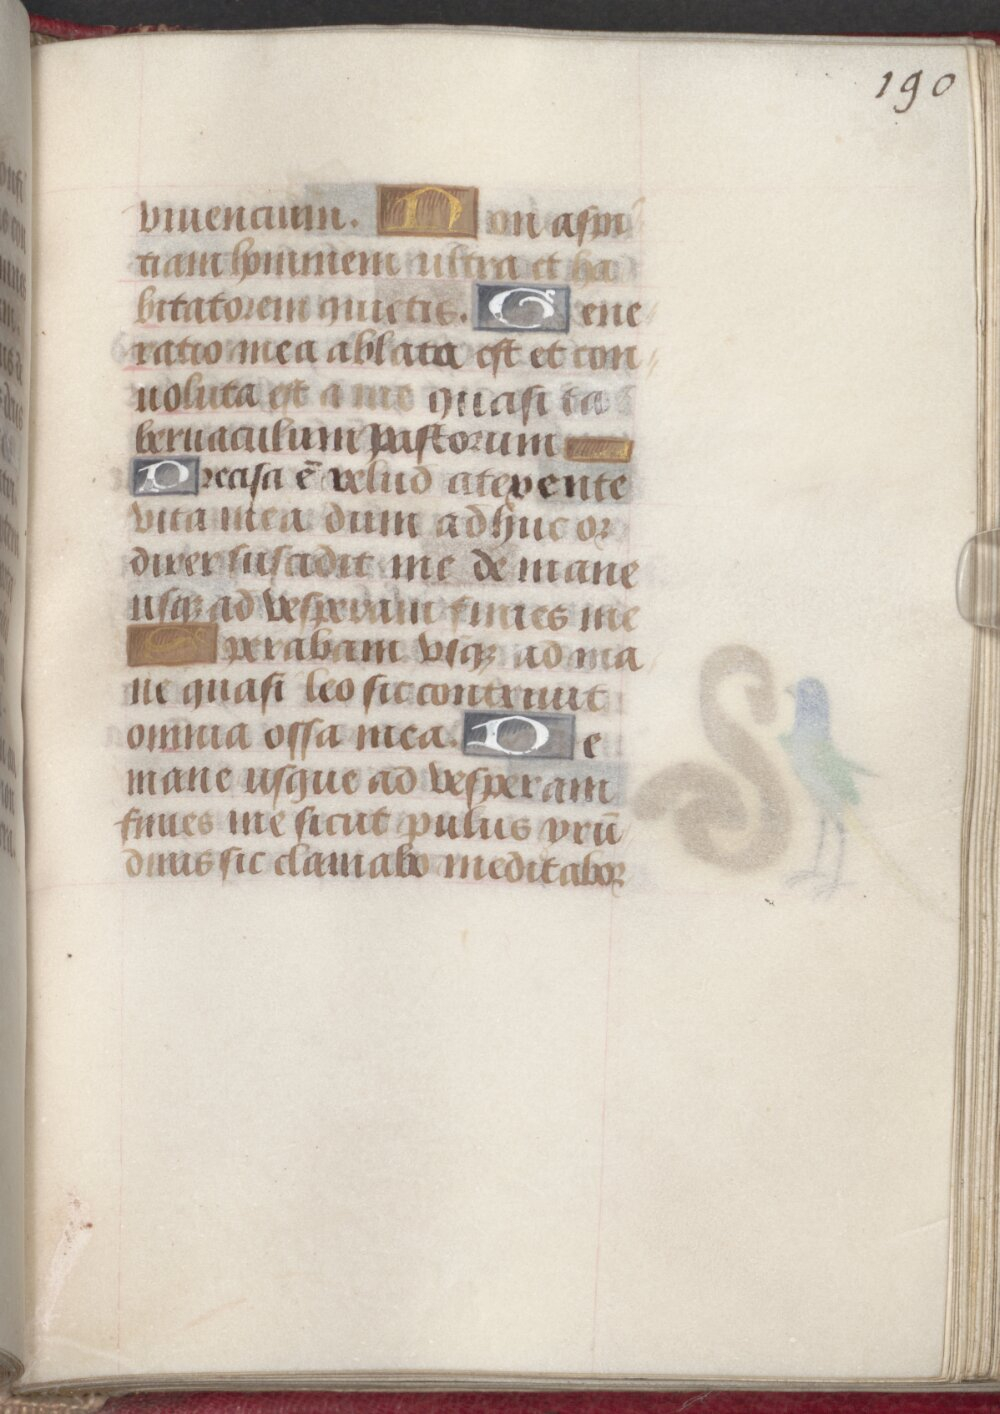 190
viuencium. Non aspi
ciam hominem ultra et ha
bitatorem quietis. Gene
ratio mea ablata est et con
uoluta est a me quasi ta
bernaculum pastorum
Precisa ē velud a texente
vita mea dum adhuc or
direr suscidit me de mane
usqꝫ ad vesperam finies me
Sperabam vsqꝫ ad ma
ne quasi leo sic contriuit
omnia ossa mea. De
mane usque ad vesperam
finies me sicut pulus yrū
dinis sic clamabo meditabor